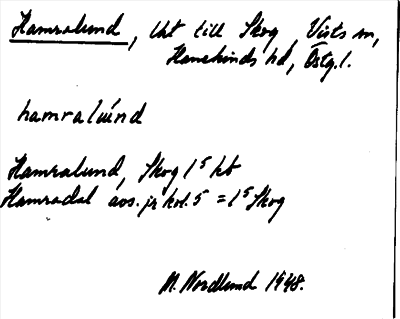 Hamralund, lht till Skog, Vists sn,
Hanekinds hd, Östg. l.
hamralúnd
Hamralund, Skog 1⁵ kb
Hamradal avs. jr kol. 5 = 1⁵ Skog
M. Nordlund 1948.